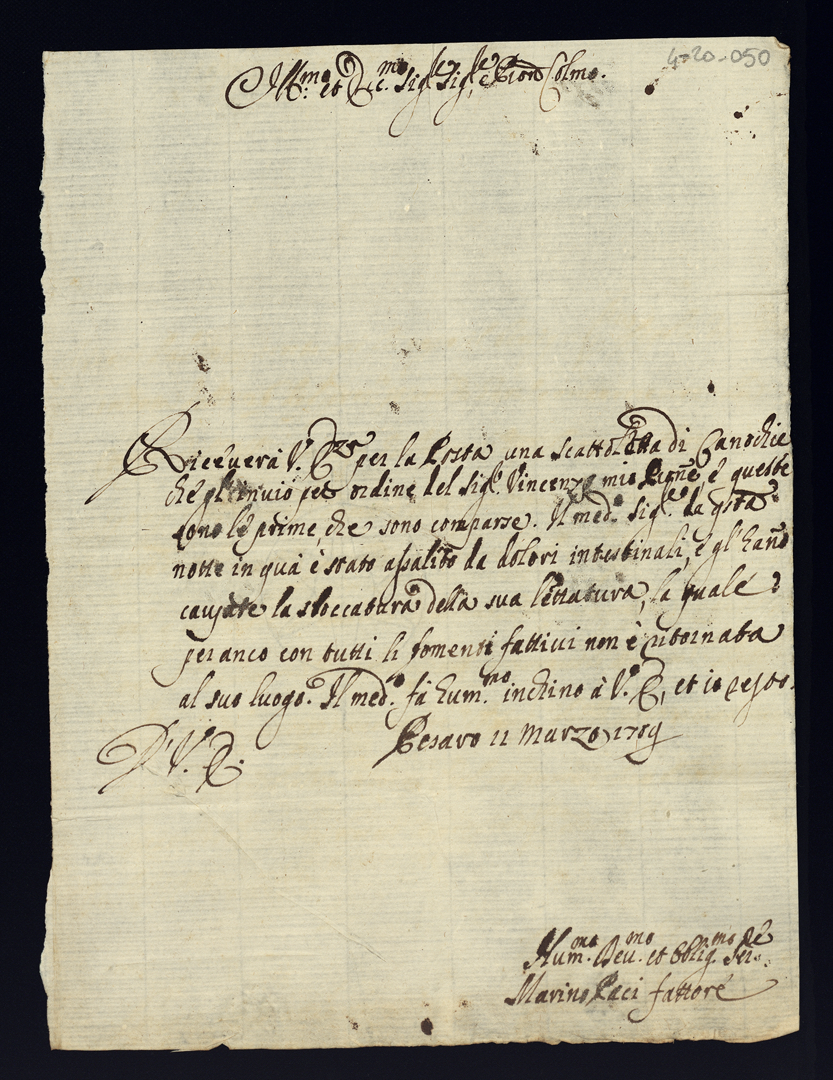 4-20-050
Ill.mo et Ecc.mo Sig.re Sig.re e Pron Colmo.
Riceverà V. Ecc.za per la Posta una scattoletta di Canochie
che gl'invio per ordine del Sig.r Vincenzo mio Pigñe, e queste
sono le prime, che sono comparse. Il med.o Sig.re da q̃sta
notte in quà è stato assalito da dolori intestinali, e gl'hãno
causate la sloccatura della sua
peranco con tutti li fomenti fattivi non è ritornata
al suo luogo. Il med.o fà hum.mo inchino à V.E, et io resto.
D'V.E. Pesaro 11 Marzo 1709
Hum.mo Deu.mo et Oblig.mo Se.re
Marino Paci fattore